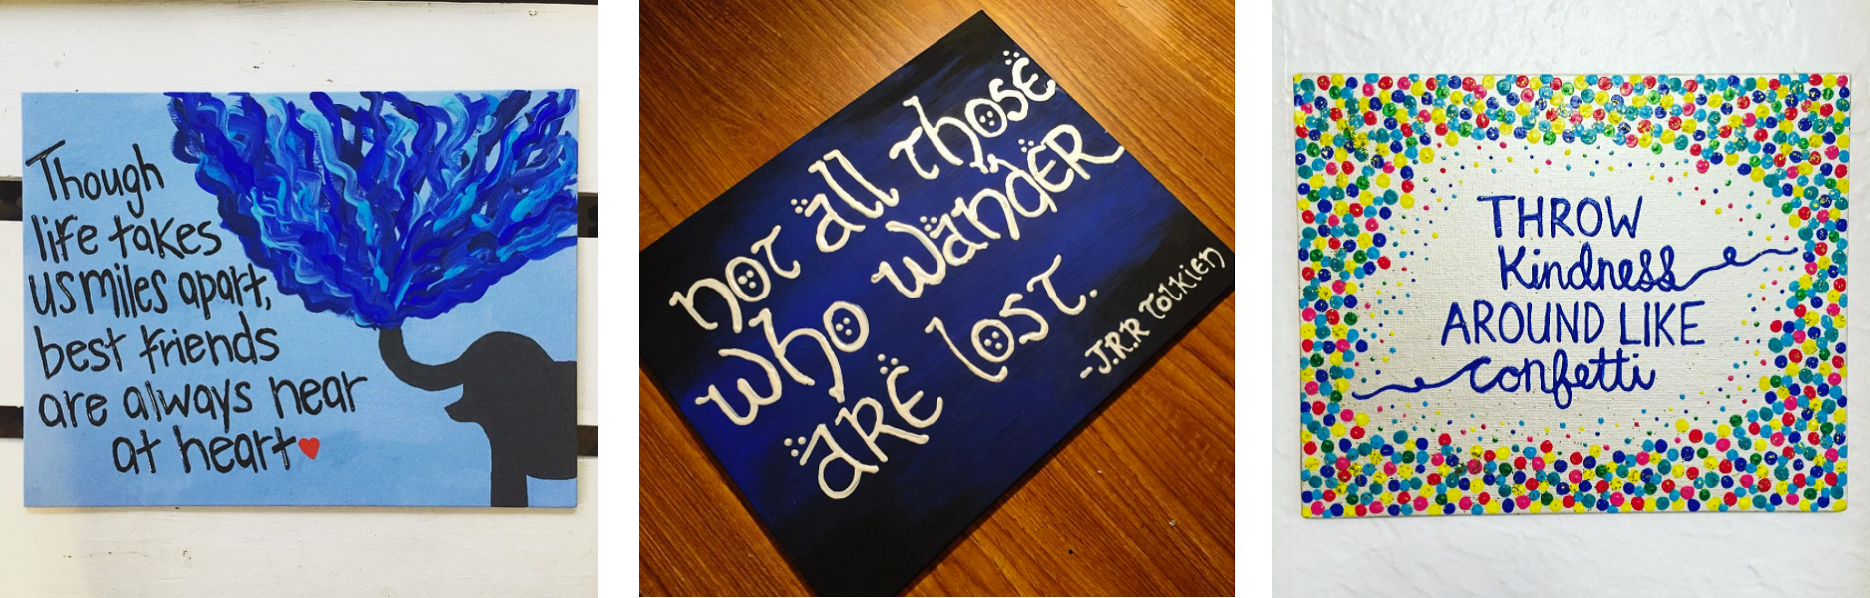 Though
life takes
us miles apart,
best friends
are always near
at heart
not all those
who wander
are lost.
-J.R.R Tolkien
THROW
Kindness
AROUND LIKE
confetti